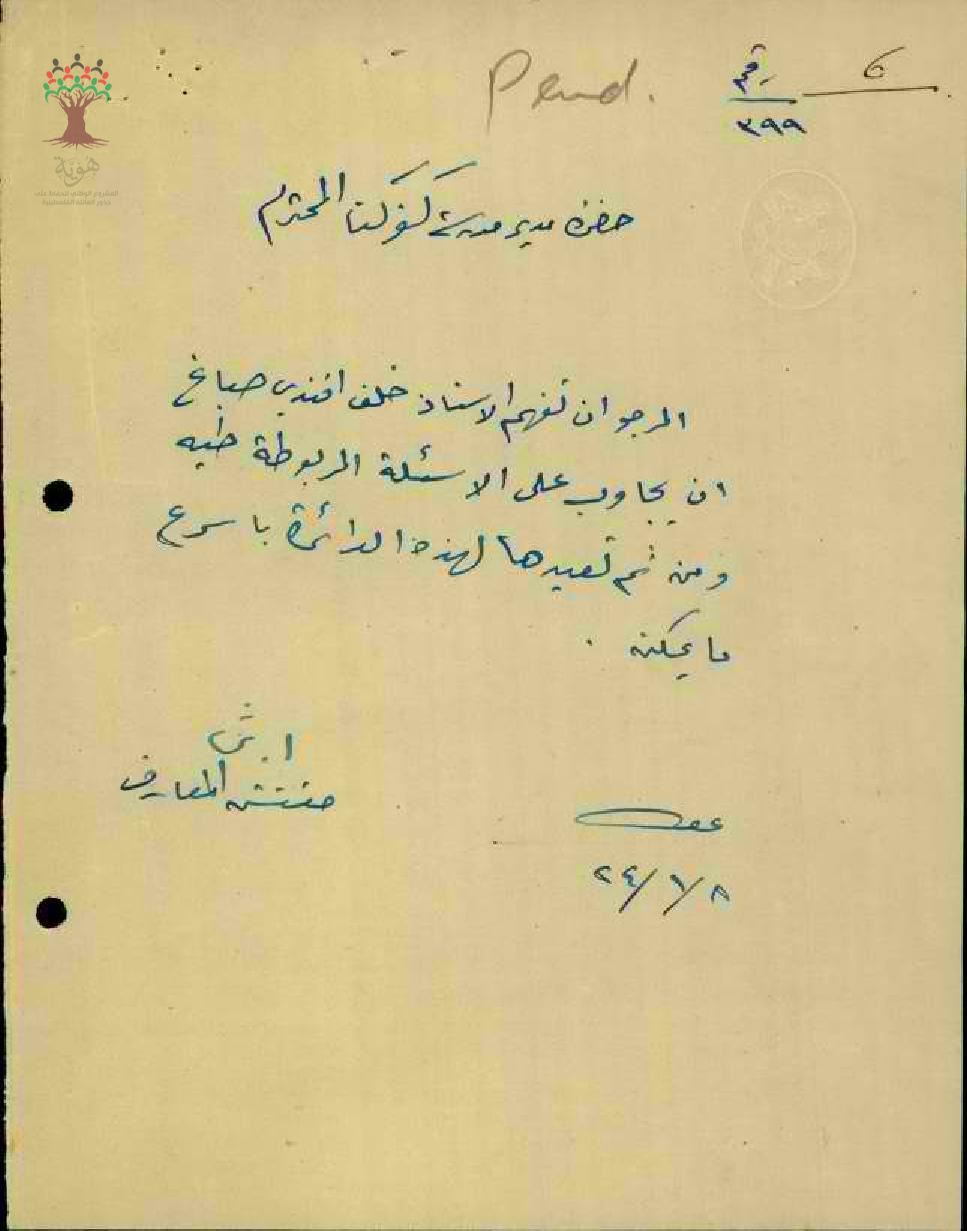 6
Pend.
رقم
٣٩٩
هوية
المشروع الوطني للحفاظ على
جذور العائلة الفلسطينية
حضرة مدير مدرسة كفركنا المحترم
المرجو ان تفهم الاستاذ خلف افندي صباغ
ان يجاوب على الاسئلة المربوطة طيه
ومن ثم تعيدها لهذه الدائرة باسرع
ما يمكنه .
مفتش المعارف
عكا
٢٤/٦/٨